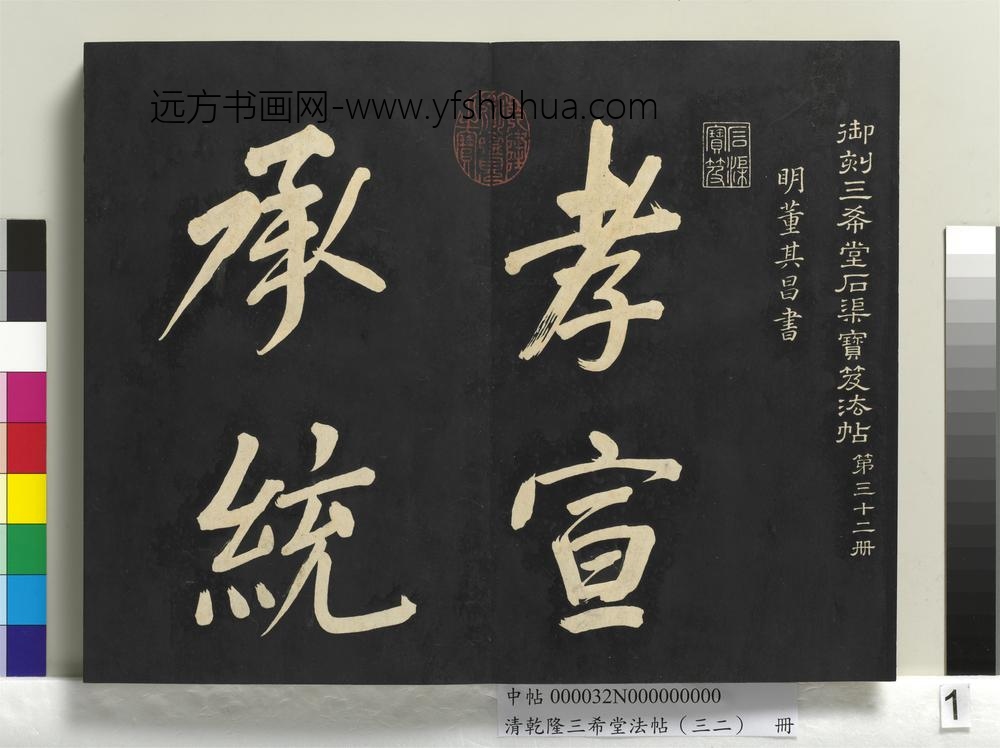 远方书画网-www.yfshuhua.com
御刻三希堂石渠寶笈法帖 第三十二册
明董其昌書
石渠寶笈
孝宣
承統
中帖 000032N000000000
清乾隆三希堂法帖（三二） 冊
1